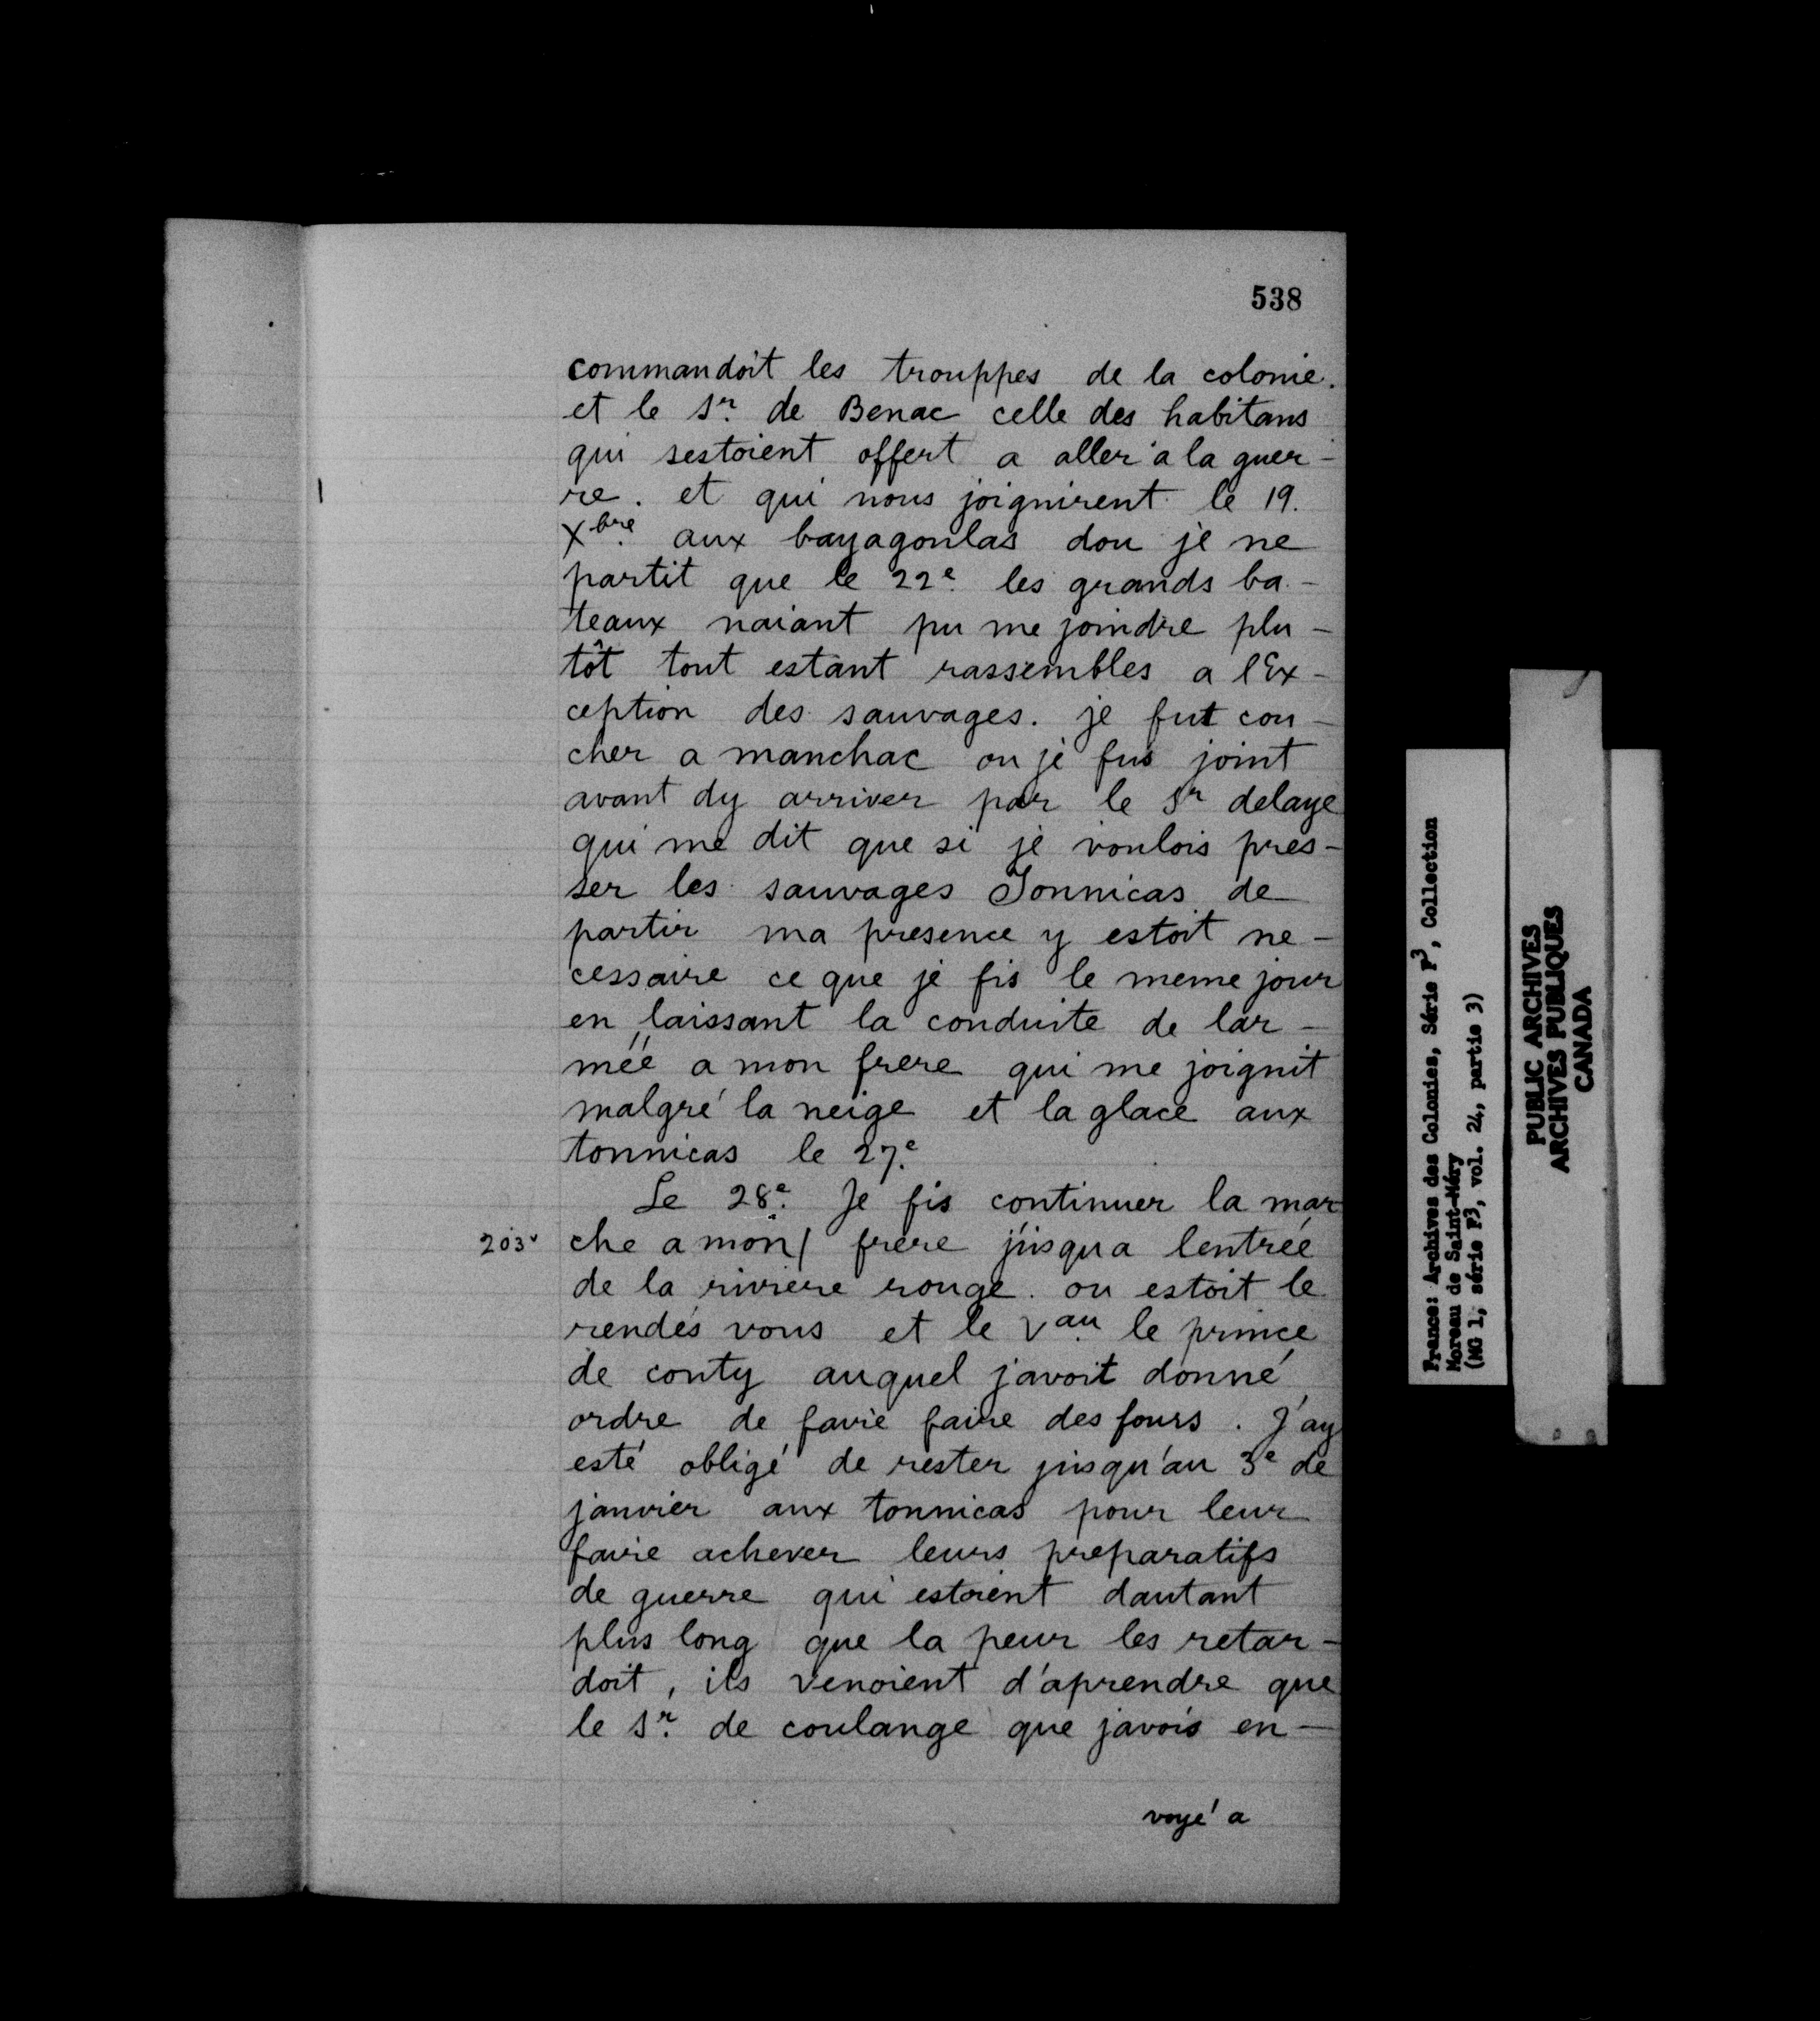 538
commandoit les trouppes de la colonie.
et le Sr. de Benac celle des habitans
qui sestoient offert a aller a la guer-
re. et qui nous joignirent le 19.
Xbre. aux bayagoulas dou je ne
partit que le 22e. les grands ba-
teaux naiant pu me joindre plu-
tôt tout estant rassembles a l'Ex-
ception des sauvages. je fut cou-
cher a manchac ou je fus joint
avant dy arriver par le Sr delaye
qui me dit que si je voulois pres-
ser les sauvages Tonnicas de
partir ma presence y estoit ne-
cessaire ce que je fis le meme jour
en laissant la conduite de lar-
méé a mon frere qui me joignit
malgré la neige et la glace aux
tonnicas le 27.e
Le 28e. Je fis continuer la mar
203v che a mon/ frere jusqua lentrée
de la riviere rouge. ou estoit le
rendés vous et le Vau. le prince
de conty auquel javoit donné
ordre de favie faire des fours. J'ay
esté obligé de rester jusqu'au 3e de
janvier aux tonnicas pour leur
faire achever leurs preparatifs
de guerre qui estoient dautant
plus long que la peur les retar-
doit, ils venoient d'aprendre que
le Sr. de coulange que javois en-
voyé a
France: Archives des Colonies, Série F3, Collection
Moreau de Saint-Méry
(MG 1, série F3, vol. 24, partie 3)
PUBLIC ARCHIVES
ARCHIVES PUBLIQUES
CANADA